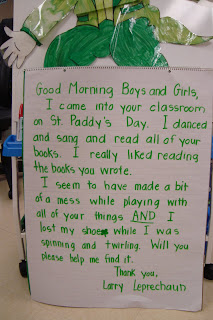 Good Morning Boys and Girls,
I came into your classroom
on St. Paddy's Day. I danced
and sang and read all of your
books. I really liked reading
the books you wrote.
I seem to have made a bit
of a mess while playing with
all of your things AND I
lost my shoe while I was
spinning and twirling. Will you
please help me find it.
Thank you,
Larry Leprechaun